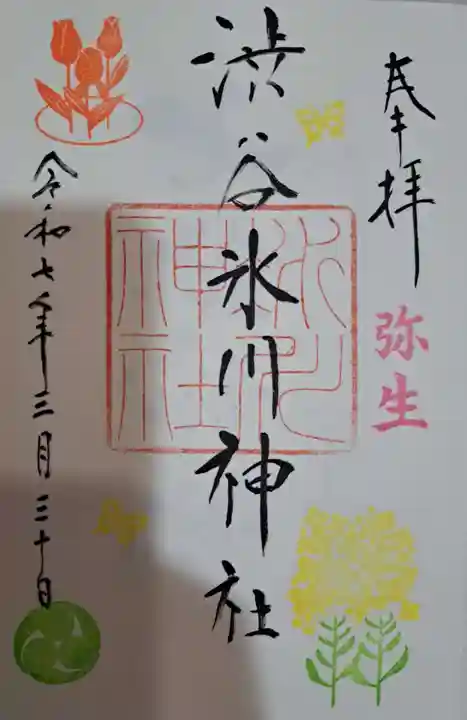 奉拝
弥生
渋谷氷川神社
氷川
神社
令和七年三月三十日